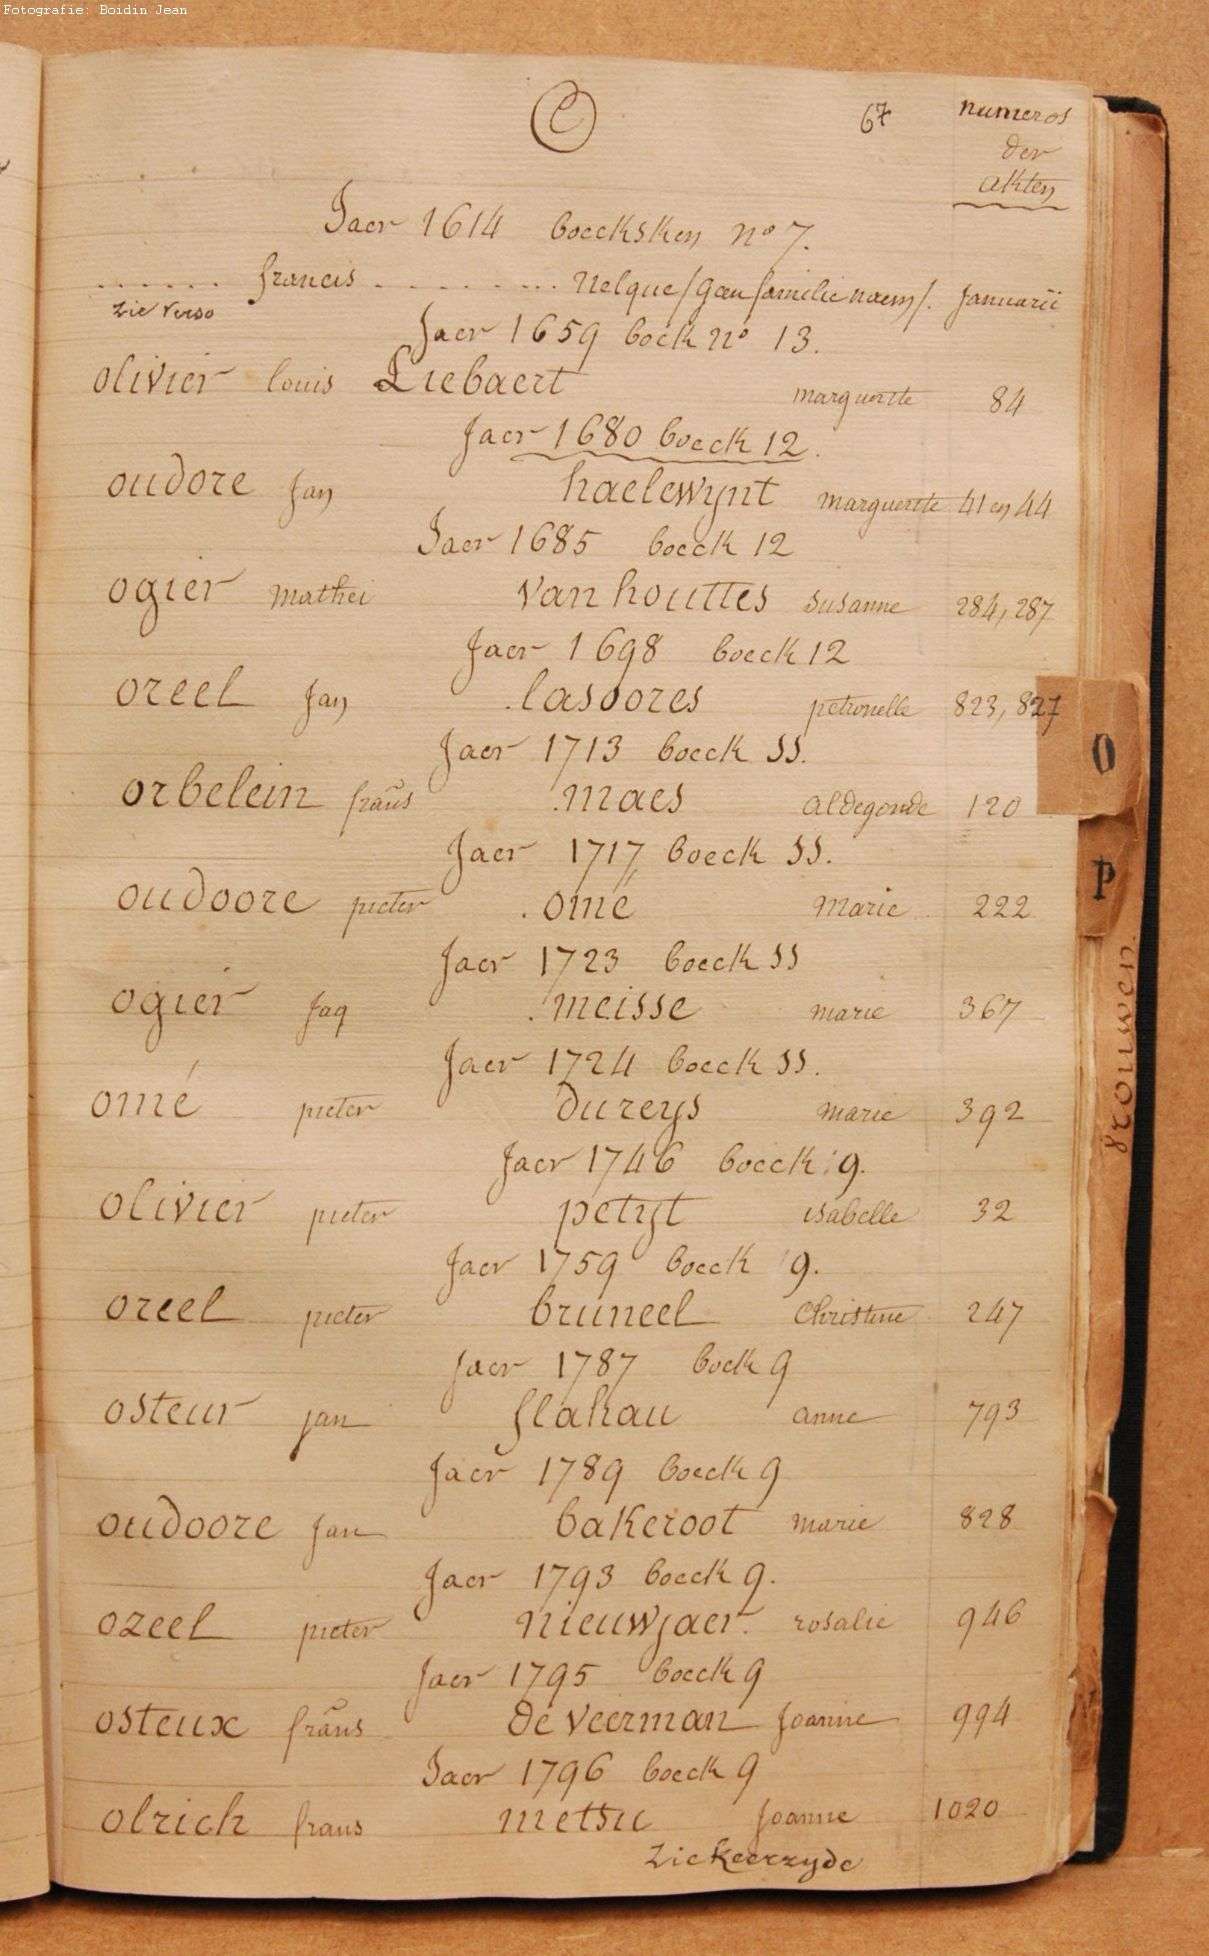 Fotografie: Boidin Jean
67 numeros
der
akten
Jaer 1614 boecksken no 7.
...... francis ......... Nelque /Geen familie naem/. Januarii
zie verso
Jaer 1659 boek no 13.
olivier louis Liebaert marguerite 84
Jaer 1680 boeck 12.
oudore Jan haelewynt marguerite 41 en 44
Jaer 1685 boeck 12
ogier mathei van houttes susanne 284, 287
Jaer 1698 boeck 12
oreel Jan .lasoores petronelle 823, 827
O
Jaer 1713 boeck SS.
orbelein frans .maes aldegonde 120
Jaer 1717, boeck SS.
P
oudoore pieter . omé marie 222
Jaer 1723 boeck SS
vrouwen
ogier Jaq . meisse marie 367
Jaer 1724 boeck SS.
omé pieter dureys marie 392
Jaer 1746 boeck 9.
olivier pieter petyt isabelle 32
Jaer 1759 boeck 9.
oreel pieter bruneel Christine 247
Jaer 1787 boek 9
osteur jan flahau anne 793
Jaer 1789 boeck 9
oudoore Jan bakeroot marie 828
Jaer 1793 boeck 9.
ozeel pieter nieuwjaer. rosalie 946
Jaer 1795 boeck 9
osteux frans de veerman Joanne 994
Jaer 1796 boeck 9
olrich frans metsu Joanne 1020
zie keerzyde